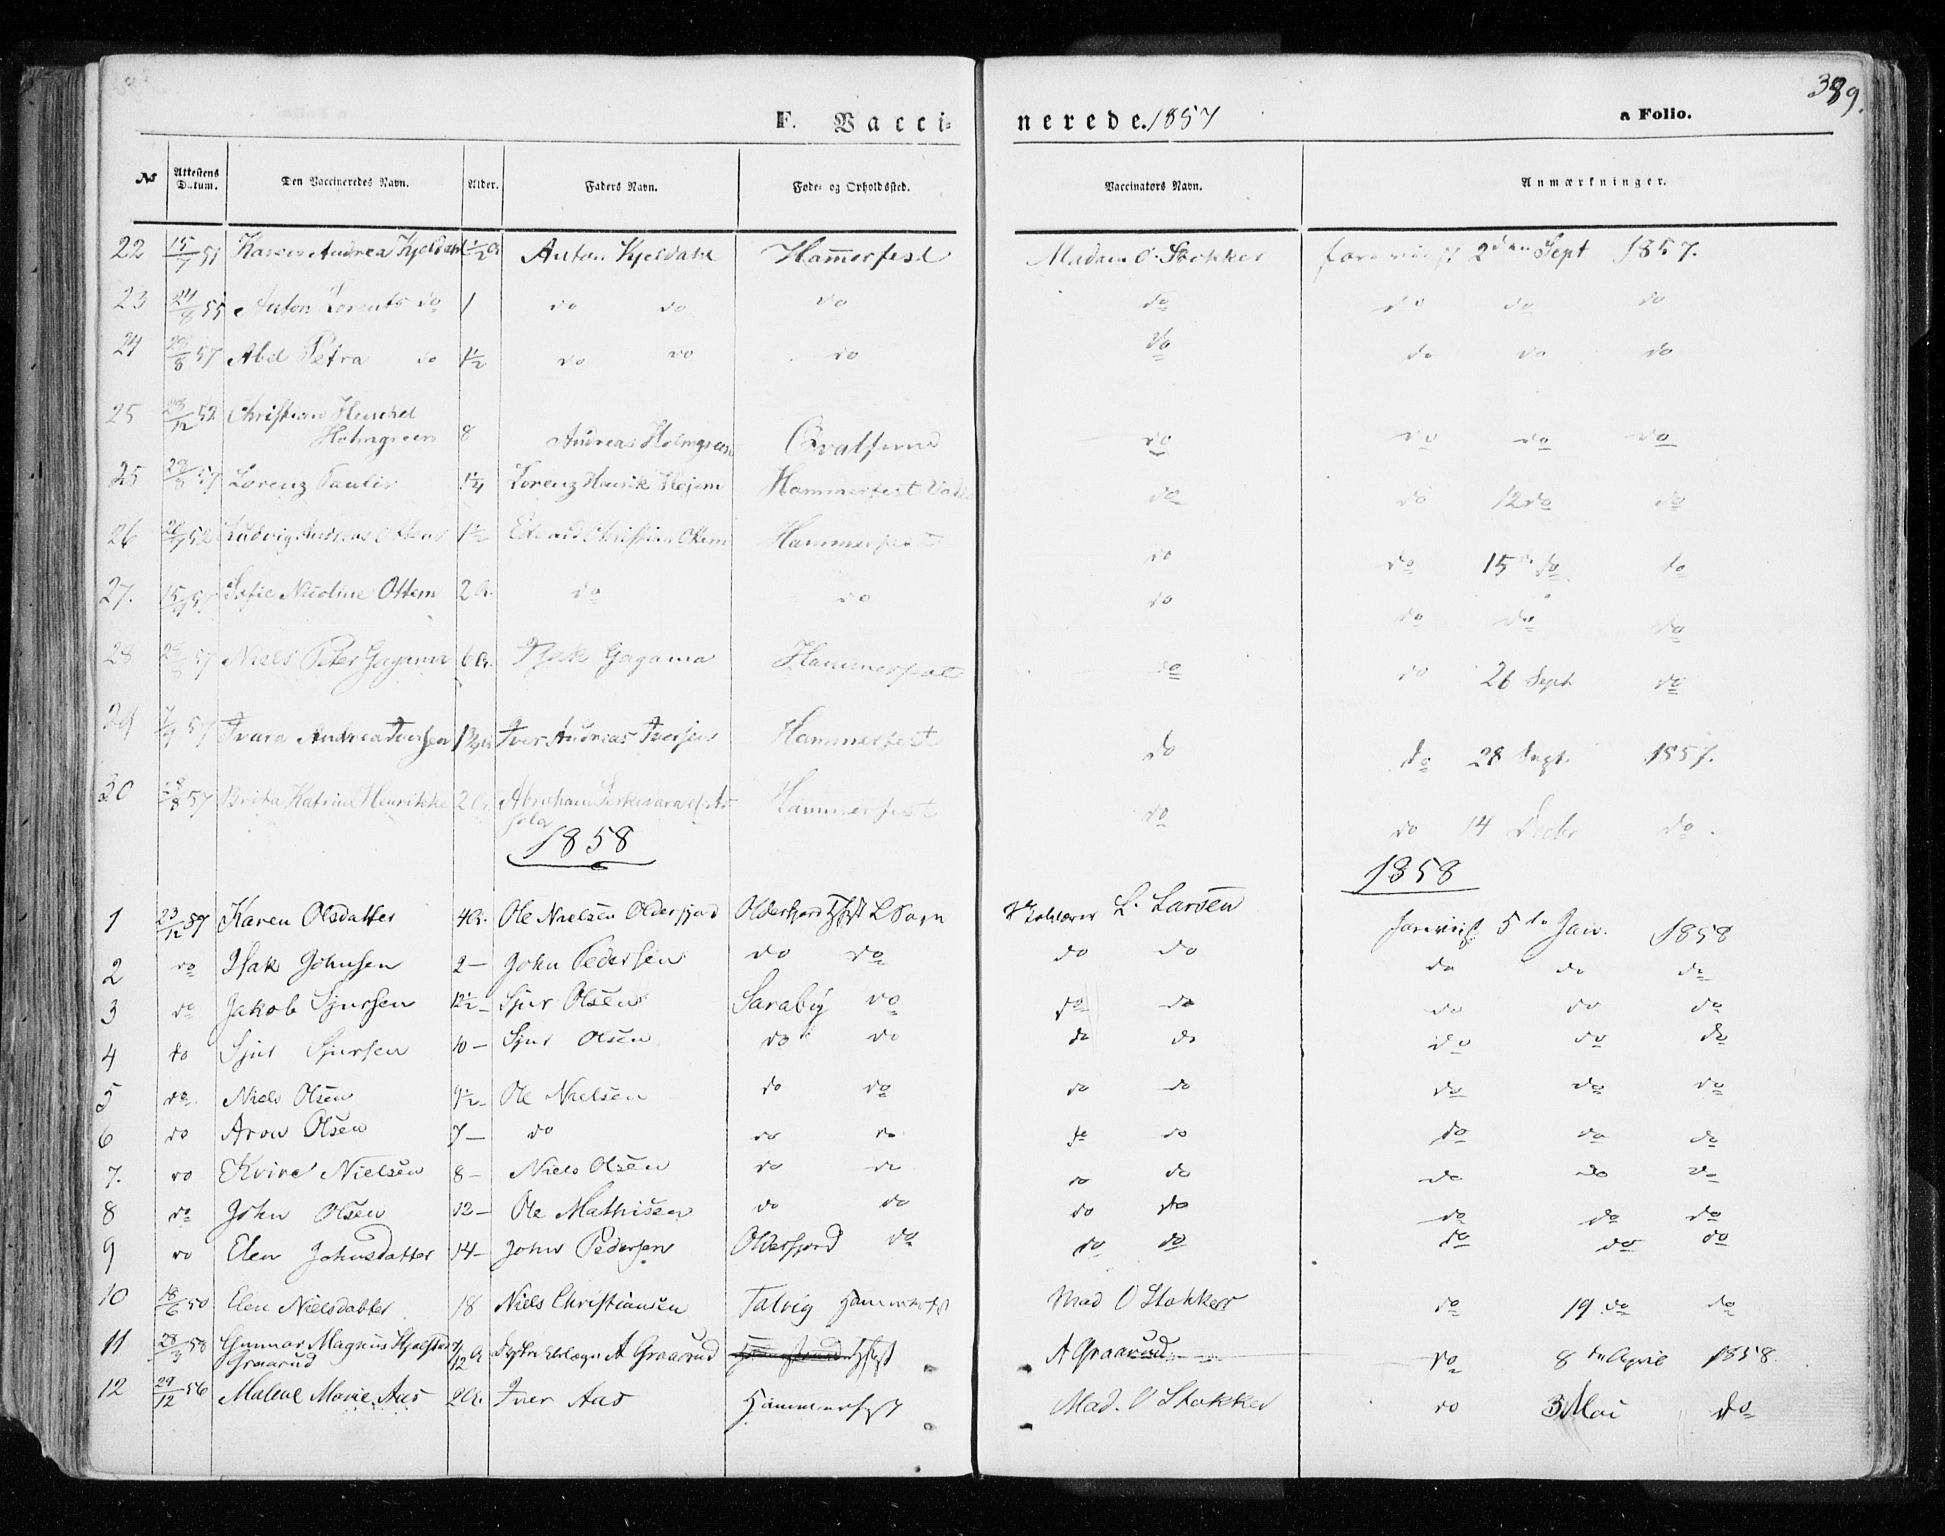 389.
F. Vacci- nerede. 1857 a Folio.
No Attestens Datum. Den Vaccineredes Navn. Alder. Faders Navn. Føde- og Opholdssted. Vaccinators Navn. Anmærkninger.
22 Andrea Kjeldahl 1/2 Anton Kjeldahl Hamerfest Madam O. Stokker 2den Sept 1857.
23 24/8 55 Anton Lorents do 1 do do do do do do do
24 57 Abel Petra do 1 1/2 do do do do do do do
25 52 Christian Henchel
Holmgreen 8 Andreas Holmgreen Qvalsund do do do do
25 57 Lorenz 1 1/4 Lorenz Henrik Hojem Hammerfest do do 12 do do
26 52 Ludvig Andreas Ottem 1 1/2 Christian Ottem Hammerfest do do 15 do do
27. 15 Sofie Nicoline Ottem 2 do do do do do do
28 57 Niels Peter Gagama 6 Isak Gagama Hammerfest do do 26 Sept do
29 57 Ivara Andrea Iversen Iver Andreas Iversen Hammerfest do do 28 Sept. 1857.
30 57 Brita Katrine Henrikke 2 Abraham Hammerfest do do 14 Decbr do.
1858 1858
1 23/12 57 Karen Olsdatter 4 Ole Nielsen Olderfjord Olderfjord L. Larsen forevist 5te Jan. 1858
2 do Isak Johnsen 2 – John Pedersen do do do do do do do
3 do Jakob Sjursen 12 1/2 – Sjur Olsen Saraby do do do do do do
4 do Sjur Sjursen 10 – Sjur Olsen do do do do do do do
5 do. Niels Olsen 9 1/2 – Ole Nielsen do do do do do do do
6 do Aron Olsen 7 – do do do do do do do do
7. do Nielsen 8 – Niels Olsen do do do do do do do
8 do John Olsen 12 – Ole Mathisen do do do do do do do
9 do Elen Johnsdatter 14 – John Pedersen Olderfjord do do do do do do
10 18/6 50 Elen Nielsdatter 18 Niels Christiansen Talvig Hammerfest Mad O Stokker do 19 do do
11 58 Gunnar Magnus
Graarud 7/12 A Graarud A Graarud do 8 April 1858.
12 29/12 56 Malene Marie Aas 2 Iver Aas Hammerfest Mad. O Stokker do 3 Mai do